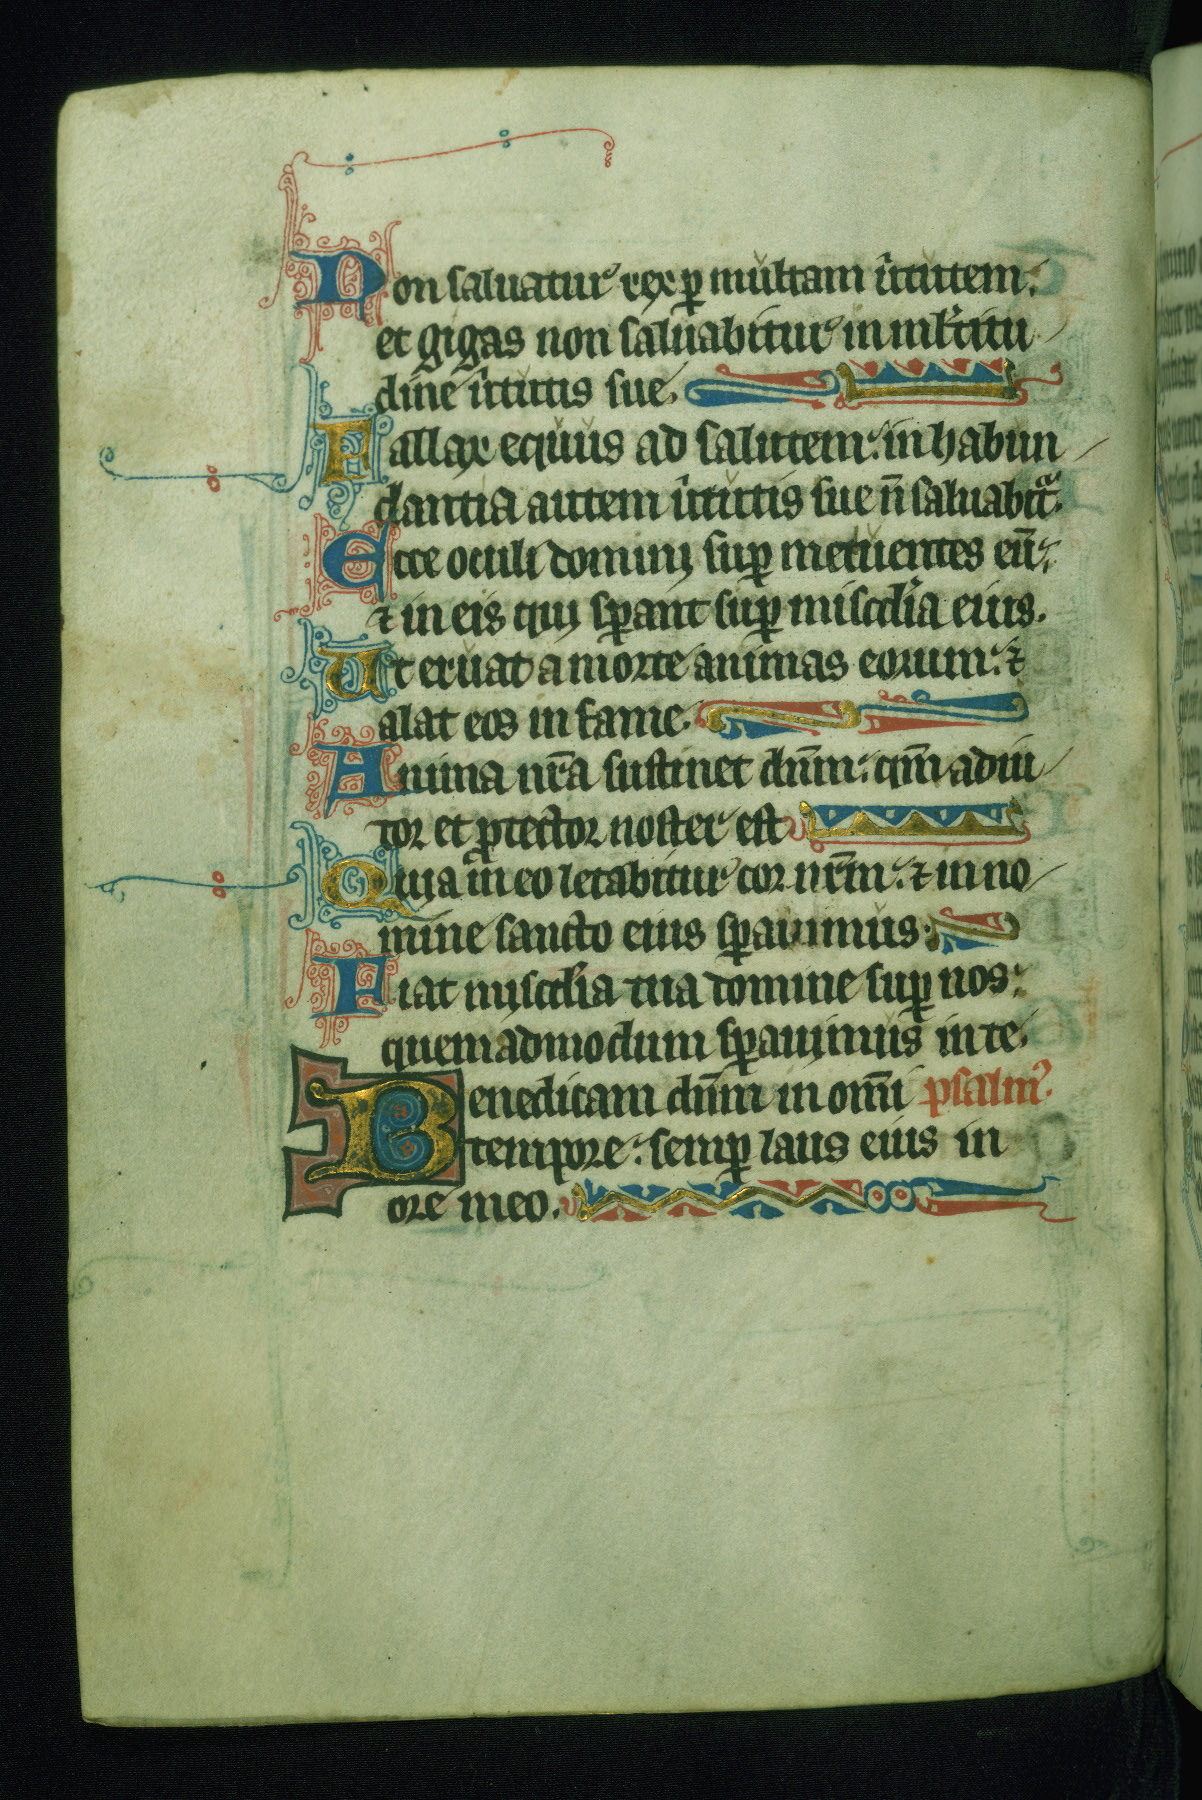 Non saluatur rex p̲ multam u̔tutem:
et gigas non saluabitur in ml̔titu
dine u̔tutis sue.
Fallax equus ad salutem: in habun
dantia autem u̔tutis sue n̄ saluabit̃.
Ecce oculi dominj sup̲ metuentes eū:
⁊ in eis quj sp̲ant sup̲ misc̔dia eius.
Ut eruat a morte animas eorum: ⁊
alat eos in fame.
Anima nr̄a sustinet dn̄m: qm̄ adiu
tor et ꝓtector noster est
Quia in eo letabitur cor nr̄m: ⁊ in no
mine sancto eius sp̲auimus.
Fiat mjsc̔dia tua domine sup̲ nos:
quemadmodum sp̲auimus in te.
Benedicam dn̄m in om̄i psalm᾽.
tempore: semp̲ laus eius in
ore meo.